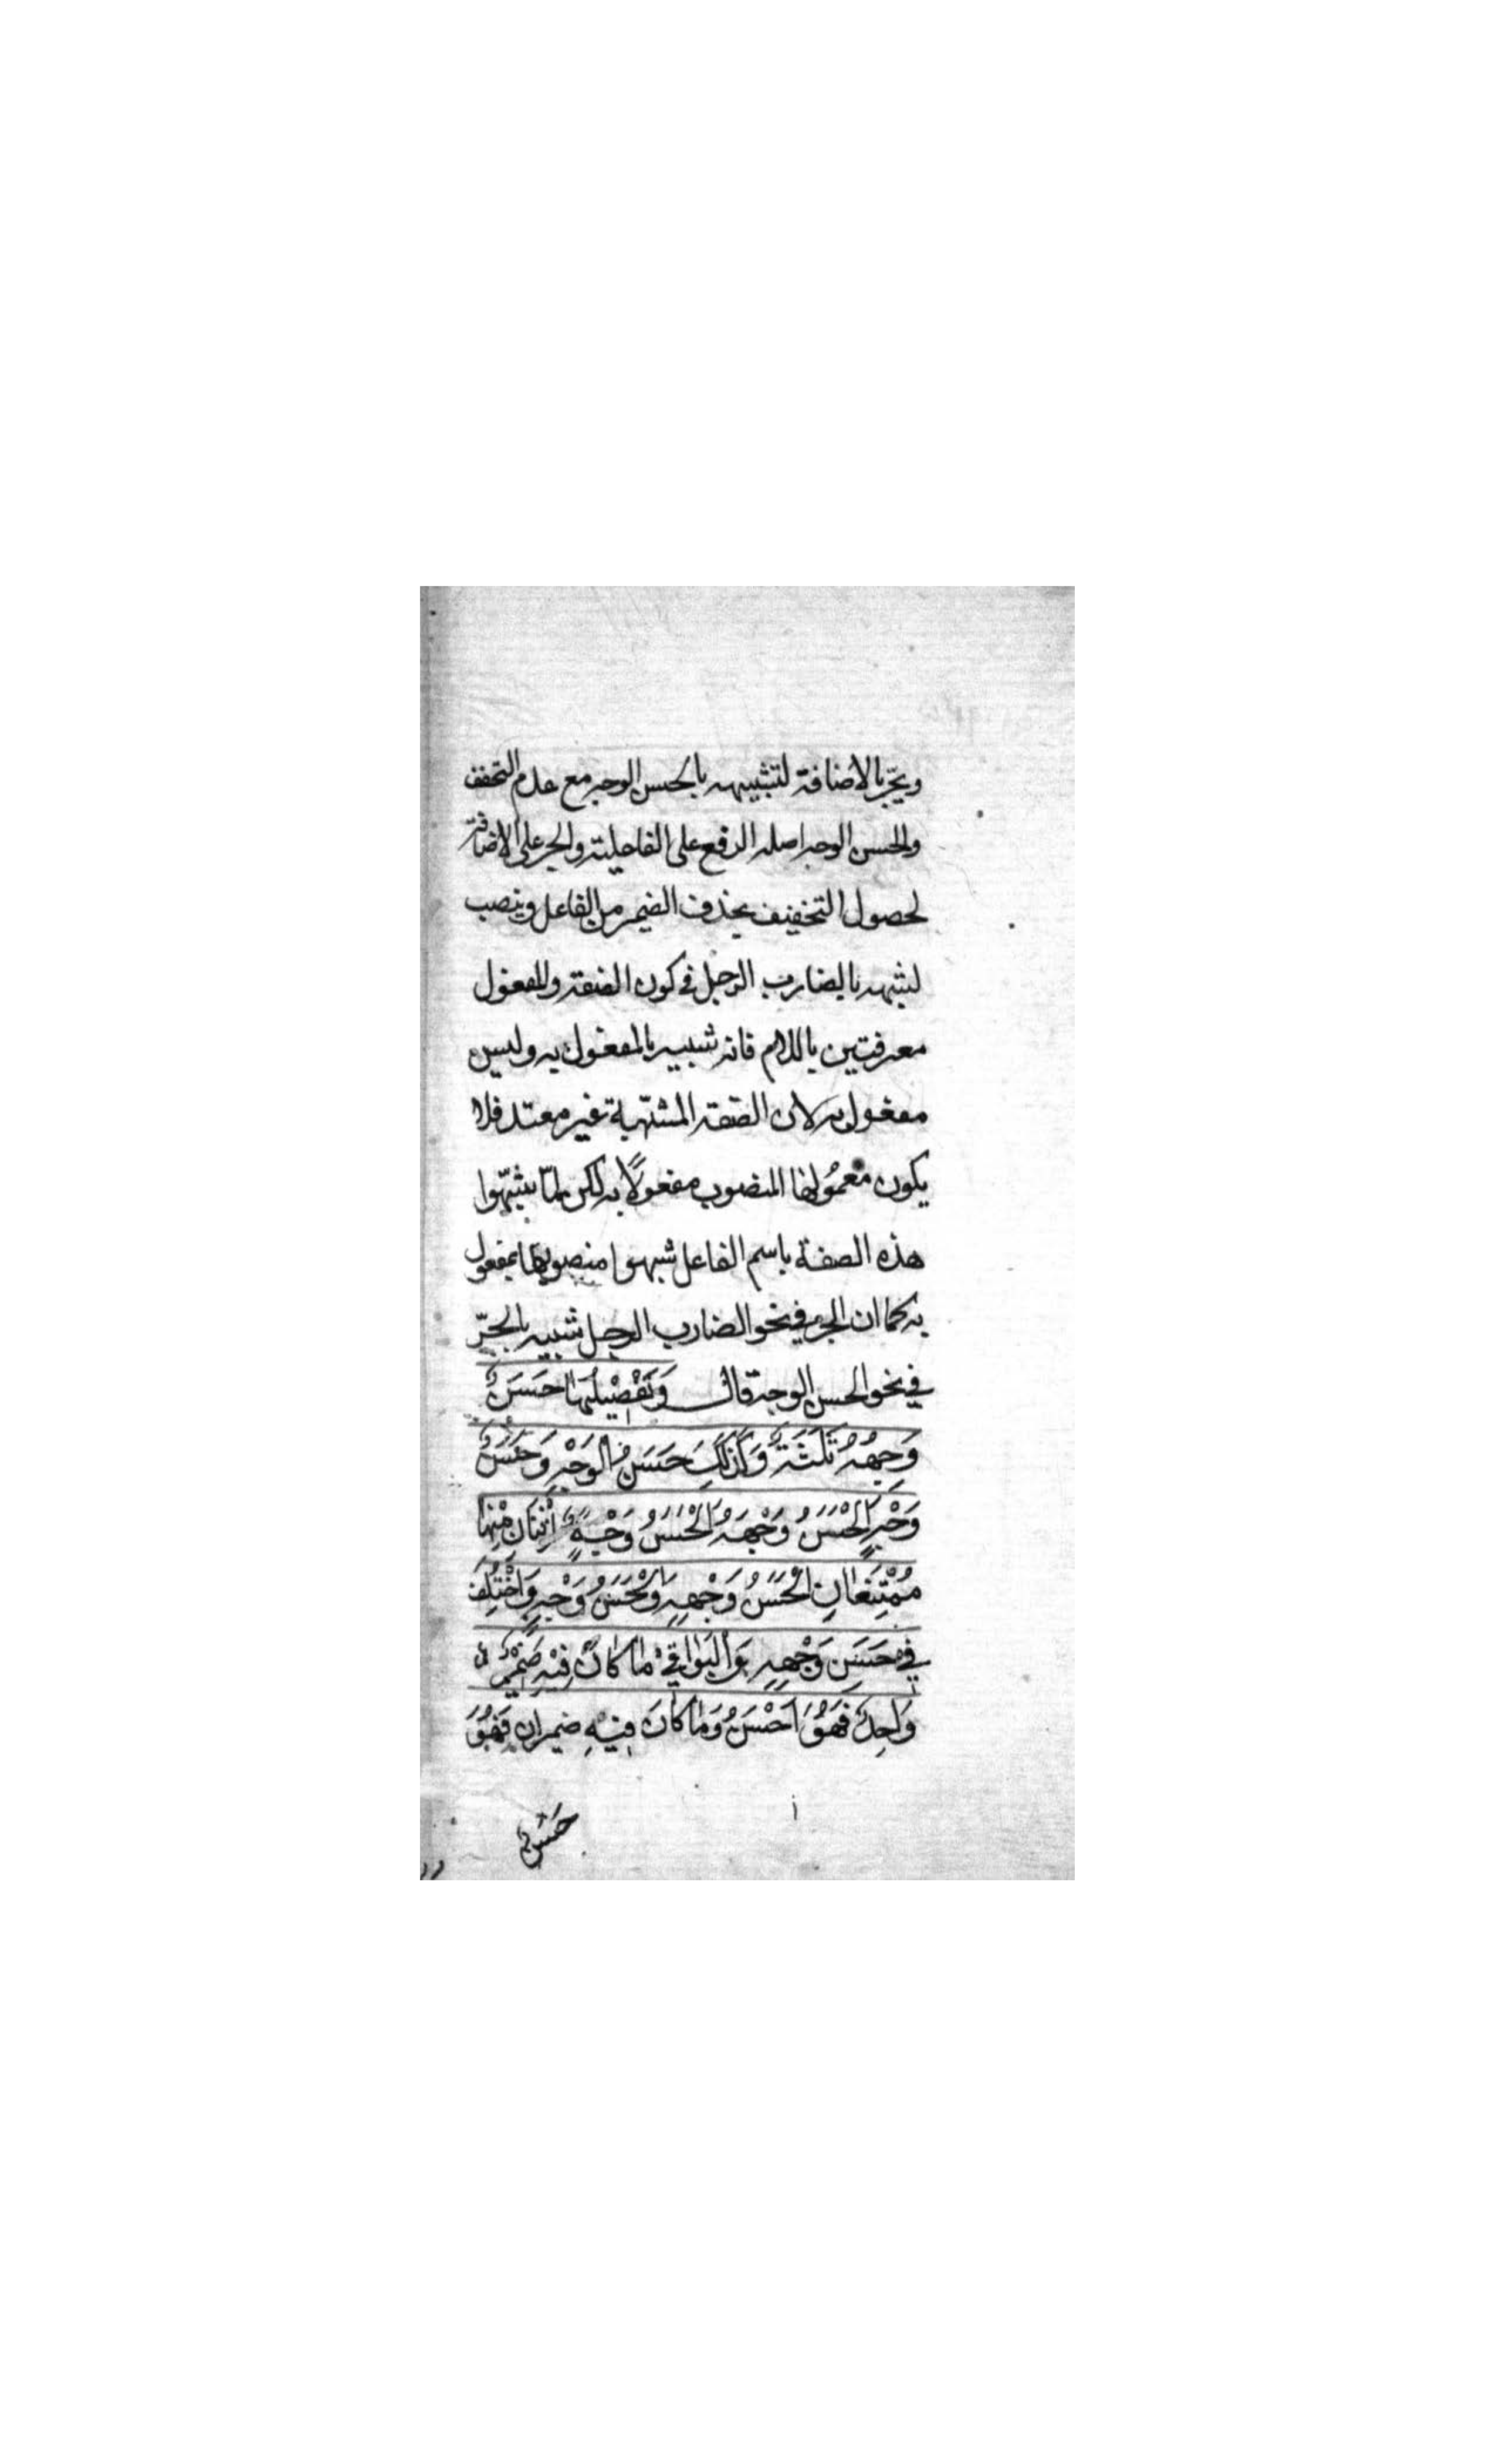 ويجرّ بالاضافة لتشبيهه بالحسن الوجه مع عدم التخفف
والحسن الوجه اصله الرفع على الفاعلية والجر على الاضافة
لحصول التخفيف بحذف الضمير من الفاعل وينصب
لشبهه بالضارب الرجل فى كون الصفة والمفعول
معرفتين باللام فانه شبيه بالمفعول به وليس
مفعول به لان الصفة المشبّهة غير معتد فلا
يكون معمُولها المنصوب مفعولًا به لكن لمّا شبّهوا
هذه الصفة باسم الفاعل شبهوا منصوبها بمفعول
به كما ان الجر في نحو الضارب الرجل شبيه بالجرّ
في نحو الحسن الوجه قال وَتَفْصِيْلُهَا حَسَنٌ
وَجهُهُ ثَلٰثَةٌ وَكَذٰلِكَ حَسَنُ الوَجْهِ وَحَسَنٌ
وَجْهٍ الْحَسَنُ وَجْهَهُ الْحَسَنُ وَجْهٍ اثْنَانِ مِنْهَا
مُمْتِنَعَانِ الْحَسَنُ وَجْهِهِ وَالْحَسَنُ وَجْهٍ وَاخْتُلِفَ
فِي حَسَنِ وَجْهِهِ وَالْبَوَاقِيْ مَا كَانَ فِيْهِ ضَمِيْرٌ
وَاحِدٌ فَهُوَ اَحْسَنُ وَمَا كَانَ فِيْهِ ضميران فَهُوَ
حَسَنٌ